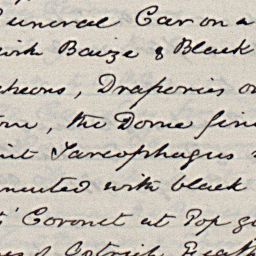 Funeral Car on a
with Baize & Black
cheons, Draperies on
the Dome fini
Sarcophagus
mented with black
Coronet at Top
Ostrich Feath